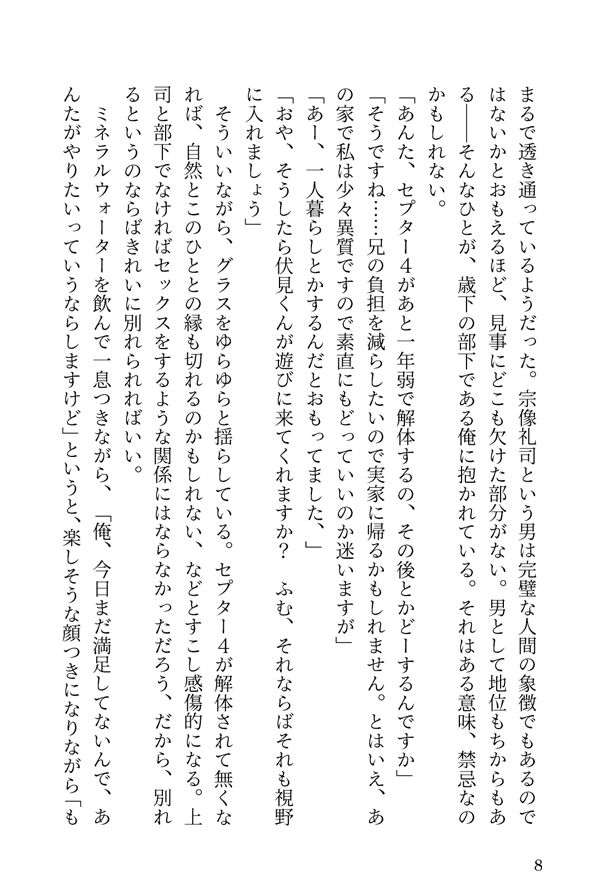 まるで透き通っているようだった。宗像礼司という男は完璧な人間の象徴でもあるので
はないかとおもえるほど、見事にどこも欠けた部分がない。男として地位もちからもあ
る――そんなひとが、歳下の部下である俺に抱かれている。それはある意味、禁忌なの
かもしれない。
「あんた、セプター４があと一年弱で解体するの、その後とかどーするんですか」
「そうですね……兄の負担を減らしたいので実家に帰るかもしれません。とはいえ、あ
の家で私は少々異質ですので素直にもどっていいのか迷いますが」
「あー、一人暮らしとかするんだとおもってました、」
「おや、そうしたら伏見くんが遊びに来てくれますか？　ふむ、それならばそれも視野
に入れましょう」
　そういいながら、グラスをゆらゆらと揺らしている。セプター４が解体されて無くな
れば、自然とこのひととの縁も切れるのかもしれない、などとすこし感傷的になる。上
司と部下でなければセックスをするような関係にはならなかっただろう、だから、別れ
るというのならばきれいに別れられればいい。
　ミネラルウォーターを飲んで一息つきながら、「俺、今日まだ満足してないんで、あ
んたがやりたいっていうならしますけど」というと、楽しそうな顔つきになりながら「も
8